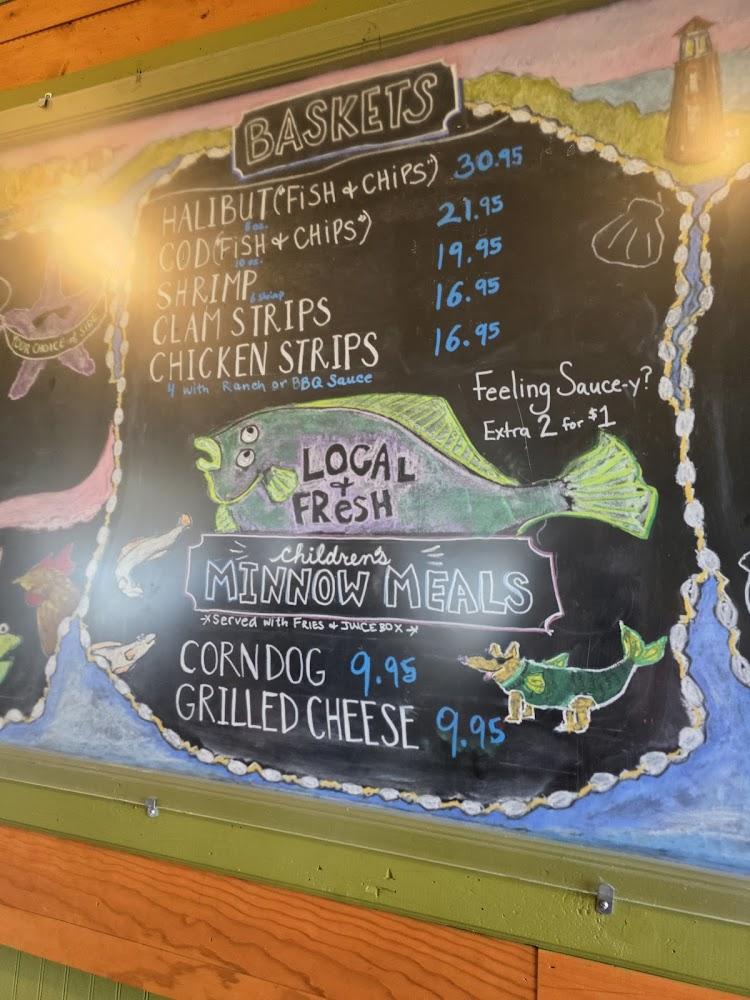 BASKETS
HALIBUT ("FISH & CHIPS") 30.95
8 oz.
COD (FISH & CHIPS") 21.95
10 oz.
SHRIMP 6 shrimp 19.95
CLAM STRIPS 16.95
CHICKEN STRIPS 16.95
4 with Ranch or BBQ Sauce
YOUR CHOICE of SIDE
Feeling Sauce-y?
Extra 2 for $1
LOCAL
+
FResH
children's
MINNOW MEALS
*Served with FRIES & JUICE BOX*
CORNDOG 9.95
GRILLED CHEESE 9.95